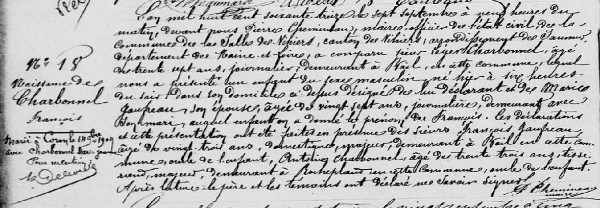 No 18
Naissance de
Charbonnel
François
Marié à
avec Charbonnel
Pour mention
L'an mil huit cent soixante treize le sept Septembre à neuf heures du
matin, devant nous Pierre Chemineau, maire, officier de l'état civil de la
Commune de la Salle de Vihiers, canton de Vihiers, arrondissement de Saumur,
département de Maine et Loire, a comparu Charbonnel, âgé
de trente sept ans, journalier, demeurant à en cette commune, lequel
nous a présenté un enfant du sexe masculin né hier à six heures
du soir dans son domicile ci-dessus désigné de lui déclarant et de Marie
Gaupeau son épouse, âgée de vingt sept ans, journalière, demeurant avec
son mari, auquel enfant on a donné le prénom de François. Les déclarations
et cette présentation ont été faites en présence des Sieurs François Gaupeau,
âgé de vingt trois ans, domestique, majeur, demeurant à en cette com-
mune, oncle de l'enfant, Charbonnel, âgé de trente trois ans, tisse-
rand, majeur, demeurant à en cette Commune, oncle de l'enfant.
Après lecture le père et les témoins ont déclaré ne savoir signer.
P. Chemineau